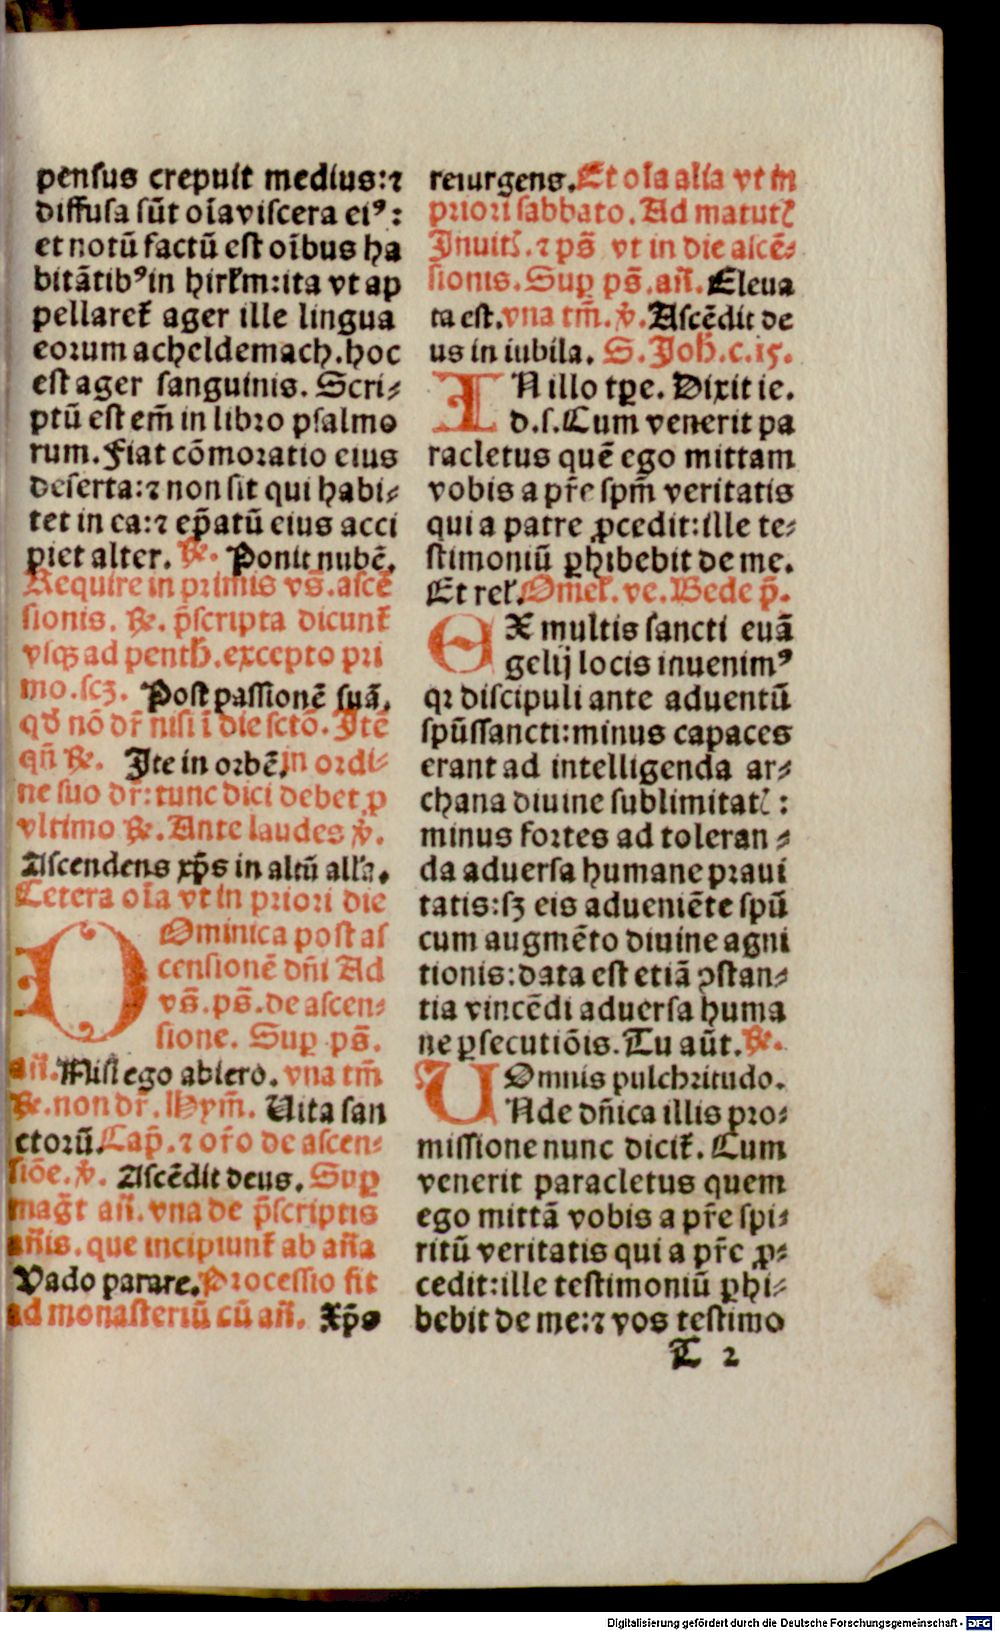 pensus crepuit medius:⁊
diffusa sūt oīa viscera eiꝰ:
et notū factū est oībus ha
bitātibꝰ in hirłm:ita vt ap
pellaret᷑ ager ille lingua
eorum acheldemach.hoc
est ager sanguinis. Scri⸗
ptū est em̄ in libro psalmo
rum.Fiat cōmoratio eius
deserta:⁊ non sit qui habi⸗
tet in ea:⁊ ep̄atū eius acci
piet alter. ℞. Ponit nubē.
Require in primis vs̄.ascē
sionis. ℞. p̄scripta dicunt᷑
vsqꝫ ad penth̄.excepto pri
mo.scꝫ. Post passionē suā.
qđ nō dr̄ nisi ī die sctō. Itē
qn̄ ℞. Ite in orbē.in ordi⸗
ne suo dr̄:tunc dici debet ꝓ
vltimo ℞. Ante laudes ℣.
Ascendens xp̄s in altū allꝛa.
Cetera oīa vt in priori die
DOminica post as
censionē dn̄i Ad
vs̄.ps̄.de ascen⸗
sione. Suꝑ ps̄.
an̄.Nisi ego abiero. vna tm̄
℞.non dr̄. Hym̄. Uita san
ctorū.Cap̄.⁊ or̄o de ascen⸗
siōe.℣. Ascēdit deus. Suꝑ
mag̅t an̄.vna de p̄scriptis
an̄is.que incipiunt᷑ ab an̄a
Vado parare.Processio fit
ad monasteriū cū an̄. Xp̄s
resurgens.Et oīa alia vt in
priori sabbato. Ad matutꝭ
Inuitꝭ.⁊ ps̄ vt in die ascē⸗
sionis.Suꝑ ps̄.an̄.Eleua
ta est.vna tm̄.℣.Ascēdit de
us in iubila. S. Joh̄.c.15.
IN illo tꝑe. Dixit ie.
d.s.Cum venerit pa
racletus quē ego mittam
vobis a pr̄e spm̄ veritatis
qui a patre ꝓcedit:ille te⸗
stimoniū ꝑhibebit de me.
Et rel̓.Omel̓.ve.Bede p̄.
EX multis sancti euā
gelij locis inuenimꝰ
qꝛ discipuli ante aduentū
spūssancti:minus capaces
erant ad intelligenda ar⸗
chana diuine sublimitatꝭ:
minus fortes ad toleran⸗
da aduersa humane praui
tatis:sꝫ eis adueniēte spū
cum augmēto diuine agni
tionis:data est etiā ꝯstan⸗
tia vincēdi aduersa huma
ne ꝑsecutiōis.Tu aūt.℞.
Omnis pulchritudo.
UNde dn̄ica illis pro⸗
missione nunc dicit᷑. Cum
venerit paracletus quem
ego mittā vobis a pr̄e spi⸗
ritū veritatis qui a pr̄e ꝓ⸗
cedit:ille testimoniū ꝑhi⸗
bebit de me:⁊ vos testimo
T 2
Digitalisierung gefördert durch die Deutsche Forschungsgemeinschaft - DFG